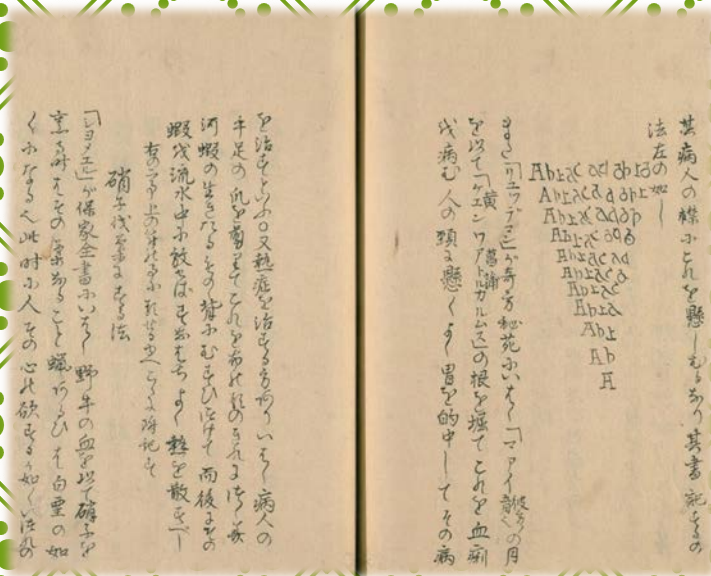 其病人の襟にこれを懸しむるなり其書記するの
法左の如し
Abracadabra
Abracadabr
Abracadab
Abracada
Abracad
Abraca
Abrac
Abra
Abr
Ab
A
また が奇方秘苑にいはく「マアイ」の月
を以て「ゲエンワアトルカルムス」の根を堀てこれを血痢
を病む人の頸に懸くよく胃を的中してその病
を治すといふ○又熱症を治する方にいはく病人の
手足の爪を剪りてこれを布の
河蝦の生きたるその背にむすびつけて而後にその
蝦を流水中に放てばすなはちよく熱を散すべし
右の二方上の ここに附記す
硝子を柔にする法
「シヨメエル」が保家全書にいはく野牛の血を以て硝子を
烹る時はその柔なること蠟あるひは白堊の如
くになる也此時に人その心の欲する如くいづれの